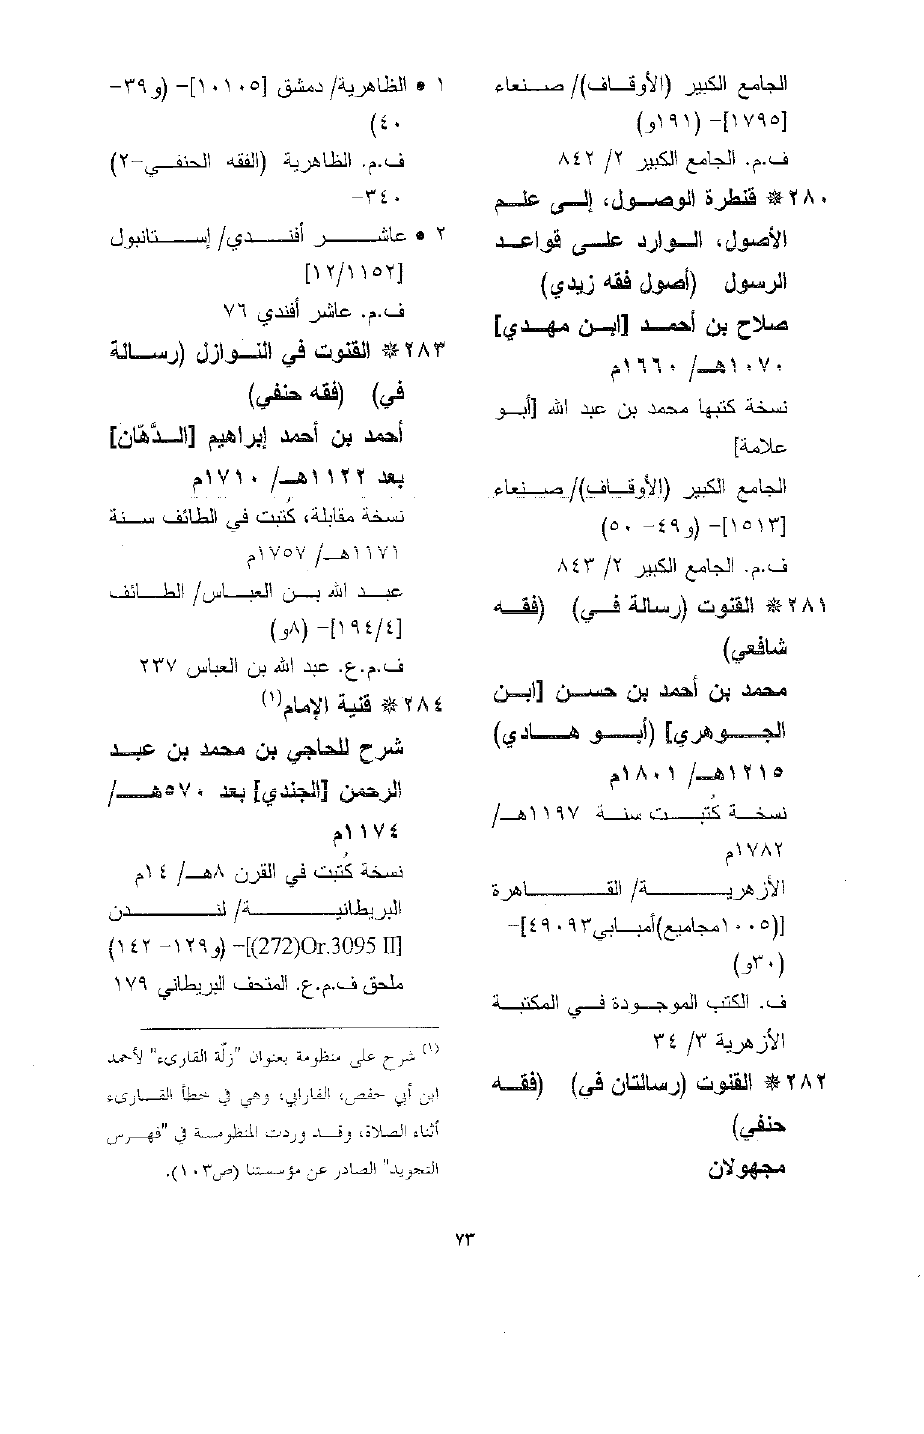 الجامع الكبير (الأوقاف)/ صنعاء
[١٧٩٥]– (١٩١و)
ف.م. الجامع الكبير ٢/ ٨٤٢
٢٨٠* قنطرة الوصول، إلى علم
الأصول، الوارد على قواعد
الرسول (أصول فقه زيدي)
صلاح بن أحمد [ابن مهدي]
١٠٧٠هـ/ ١٦٦٠م
نسخة كتبها محمد بن عبد الله [أبو
علامة]
الجامع الكبير (الأوقاف)/ صنعاء
[١٥١٣]– (و٤٩– ٥٠)
ف.م. الجامع الكبير ٢/ ٨٤٣
٢٨١* القنوت (رسالة في) (فقه
شافعي)
محمد بن أحمد بن حسن [ابن
الجوهري] (أبو هادي)
١٢١٥هـ/ ١٨٠١م
نسخة كُتبت سنة ١١٩٧هـ/
١٧٨٢م
الأزهرية/ القاهرة
[(١٠٠٥مجاميع)أمبابي٤٩٠٩٣]–
(٣٠و)
ف. الكتب الموجودة في المكتبة
الأزهرية ٣/ ٣٤
٢٨٢* القنوت (رسالتان في) (فقه
حنفي)
مجهولان
١ • الظاهرية/ دمشق [١٠١٠٥]– (و٣٩–
٤٠)
ف.م. الظاهرية (الفقه الحنفي–٢)
٣٤٠–
٢ • عاشر أفندي/ إستانبول
[١٢/١١٥٢]
ف.م. عاشر أفندي ٧٦
٢٨٣* القنوت في النوازل (رسالة
في) (فقه حنفي)
أحمد بن أحمد إبراهيم [الدَّهَان]
بعد ١١٢٢هـ/ ١٧١٠م
نسخة مقابلة، كُتبت في الطائف سنة
١١٧١هـ/ ١٧٥٧م
عبد الله بن العباس/ الطائف
[١٩٤/٤]– (٨و)
ف.م.ع. عبد الله بن العباس ٢٣٧
٢٨٤* قنية الإمام(١)
شرح للحاجي بن محمد بن عبد
الرحمن [الجندي] بعد ٥٧٠هـ/
١١٧٤م
نسخة كُتبت في القرن ٨هـ/ ١٤م
البريطانية/ لندن
[(272)Or.3095 II]– (و١٢٩– ١٤٢)
ملحق ف.م.ع. المتحف البريطاني ١٧٩
(١) شرح على منظومة بعنوان "زلّة القارىء" لأحمد
ابن أبي حفص، الفارابي، وهي في خطأ القارىء
أثناء الصلاة، وقد وردت المنظومة في "فهرس
التجويد" الصادر عن مؤسستنا (ص١٠٣).
٧٣